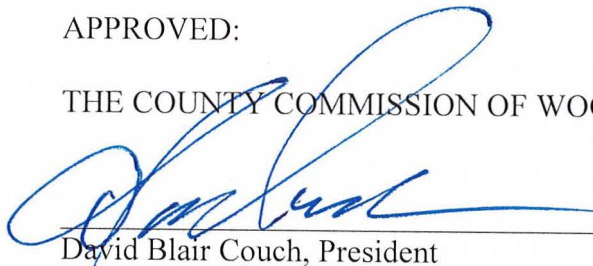 APPROVED:
THE COUNTY COMMISSION OF
David Blair Couch, President